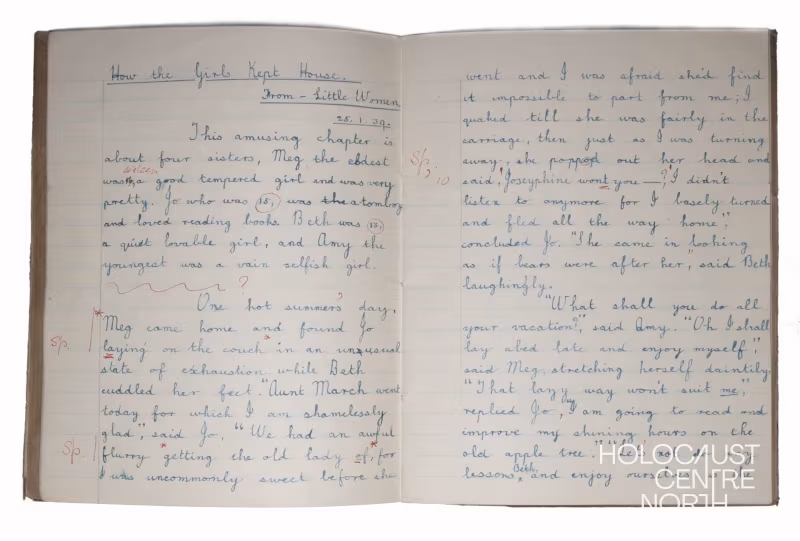 How the Girls Kept House.
From - Little Women
25.1.39.
This amusing chapter is
about four sisters, Meg the eldest
was a good tempered girl and was very
pretty. Jo who was 15, was the a tomboy
and loved reading books. Beth was 13,
a quiet lovable girl, and Amy the
youngest was a vain selfish girl.
?
One hot summers' day,
Meg came home and found Jo
Sp.
laying on the couch in an unusual
state of exhaustion while Beth
cuddled her feet. "Aunt March went
today for which I am shamelessly
glad", said Jo. "We had an awful
Sp.
flurry getting the old lady of, for
I was uncommonly sweet before she
went and I was afraid she'd find
it impossible to part from me; I
gushed till she was fairly in the
carriage, then just as I was turning
Sp.
away, she popped out her head and
10
said, 'Josephine wont you —? I didn't
listen to anymore for I basely turned
and fled all the way home",
concluded Jo. "She came in looking
as if bears were after her", said Beth
laughingly.
"What shall you do all
your vacation?", said Amy. "Oh I shall
lay abed late and enjoy myself",
said Meg, stretching herself daintily.
"That lazy way won't suit me",
replied Jo, "I am going to read and
improve my shining hours on the
old apple tree."
lessons, Beth, and enjoy ourselves
HOLOCAUST
CENTRE
NORTH